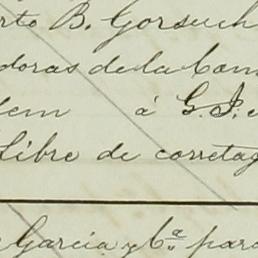 rto B. Gorsuch
doras de la Com
dem á G. P. e
Libre de corretag
García y Cª para